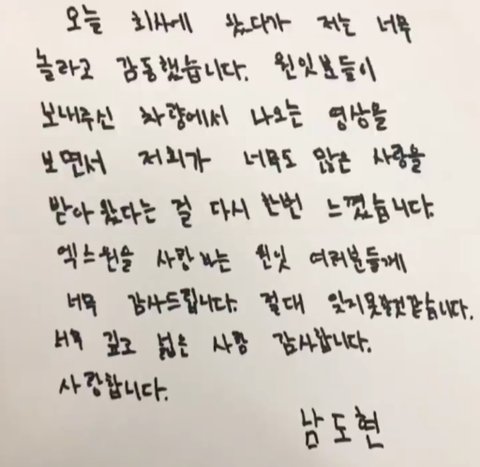 오늘 회사에 왔다가 저는 너무
놀라고 감동했습니다. 원잇분들이
보내주신 차량에서 나오는 영상을
보면서 저희가 너무도 많은 사랑을
받아 왔다는 걸 다시 한번 느꼈습니다.
엑스원을 사랑하는 원잇 여러분들께
너무 감사드립니다. 절대 잊지못할것같습니다.
너무 깊고 넓은 사랑 감사합니다.
사랑합니다.
남도현